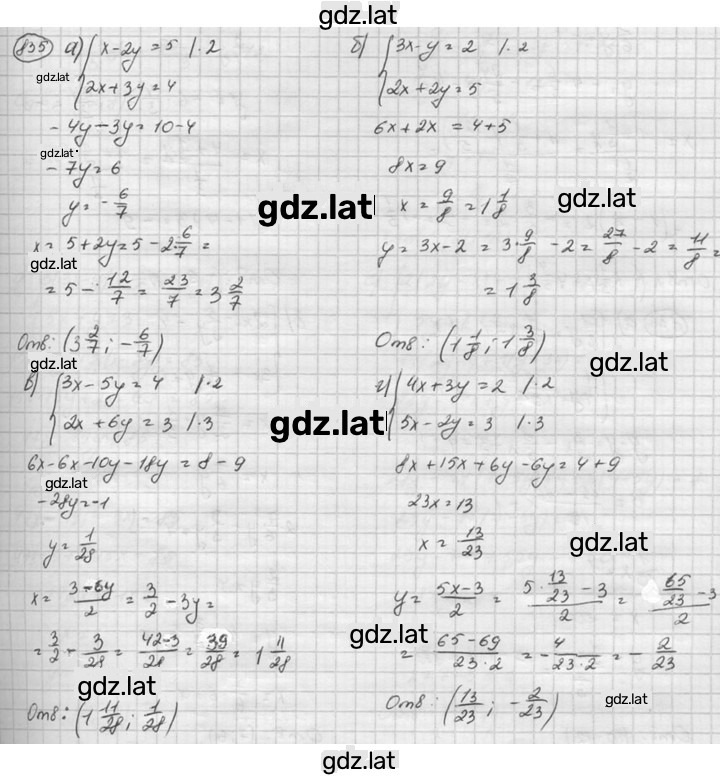 gdz.lat
835 а) { x - 2y = 5 | · 2
gdz.lat
2x + 3y = 4
- 4y - 3y = 10 - 4
gdz.lat
- 7y = 6
y = - 6/7
x = 5 + 2y = 5 - 2 · 6/7 =
gdz.lat
= 5 - 12/7 = 23/7 = 3 2/7
Отв: (3 2/7; - 6/7)
gdz.lat
б) { 3x - y = 2 | · 2
2x + 2y = 5
6x + 2x = 4 + 5
8x = 9
gdz.lat
gdz.lat
x = 9/8 = 1 1/8
y = 3x - 2 = 3 · 9/8 - 2 = 27/8 - 2 = 11/8 =
= 1 3/8
Отв: (1 1/8; 1 3/8)
gdz.lat
в) { 3x - 5y = 4 | · 2
2x + 6y = 3 | · 3
gdz.lat
6x - 6x - 10y - 18y = 8 - 9
gdz.lat
- 28y = -1
y = 1/28
x = (3 - 6y)/2 = 3/2 - 3y =
= 3/2 - 3/28 = (42 - 3)/28 = 39/28 = 1 11/28
gdz.lat
Отв: (1 11/28; 1/28)
г) { 4x + 3y = 2 | · 2
5x - 2y = 3 | · 3
8x + 15x + 6y - 6y = 4 + 9
23x = 13
x = 13/23
gdz.lat
y = (5x - 3)/2 = (5 · 13/23 - 3)/2 = (65/23 - 3)/2
gdz.lat
= (65 - 69)/(23 · 2) = - 4/(23 · 2) = - 2/23
Отв: (13/23; - 2/23)
gdz.lat
gdz.lat